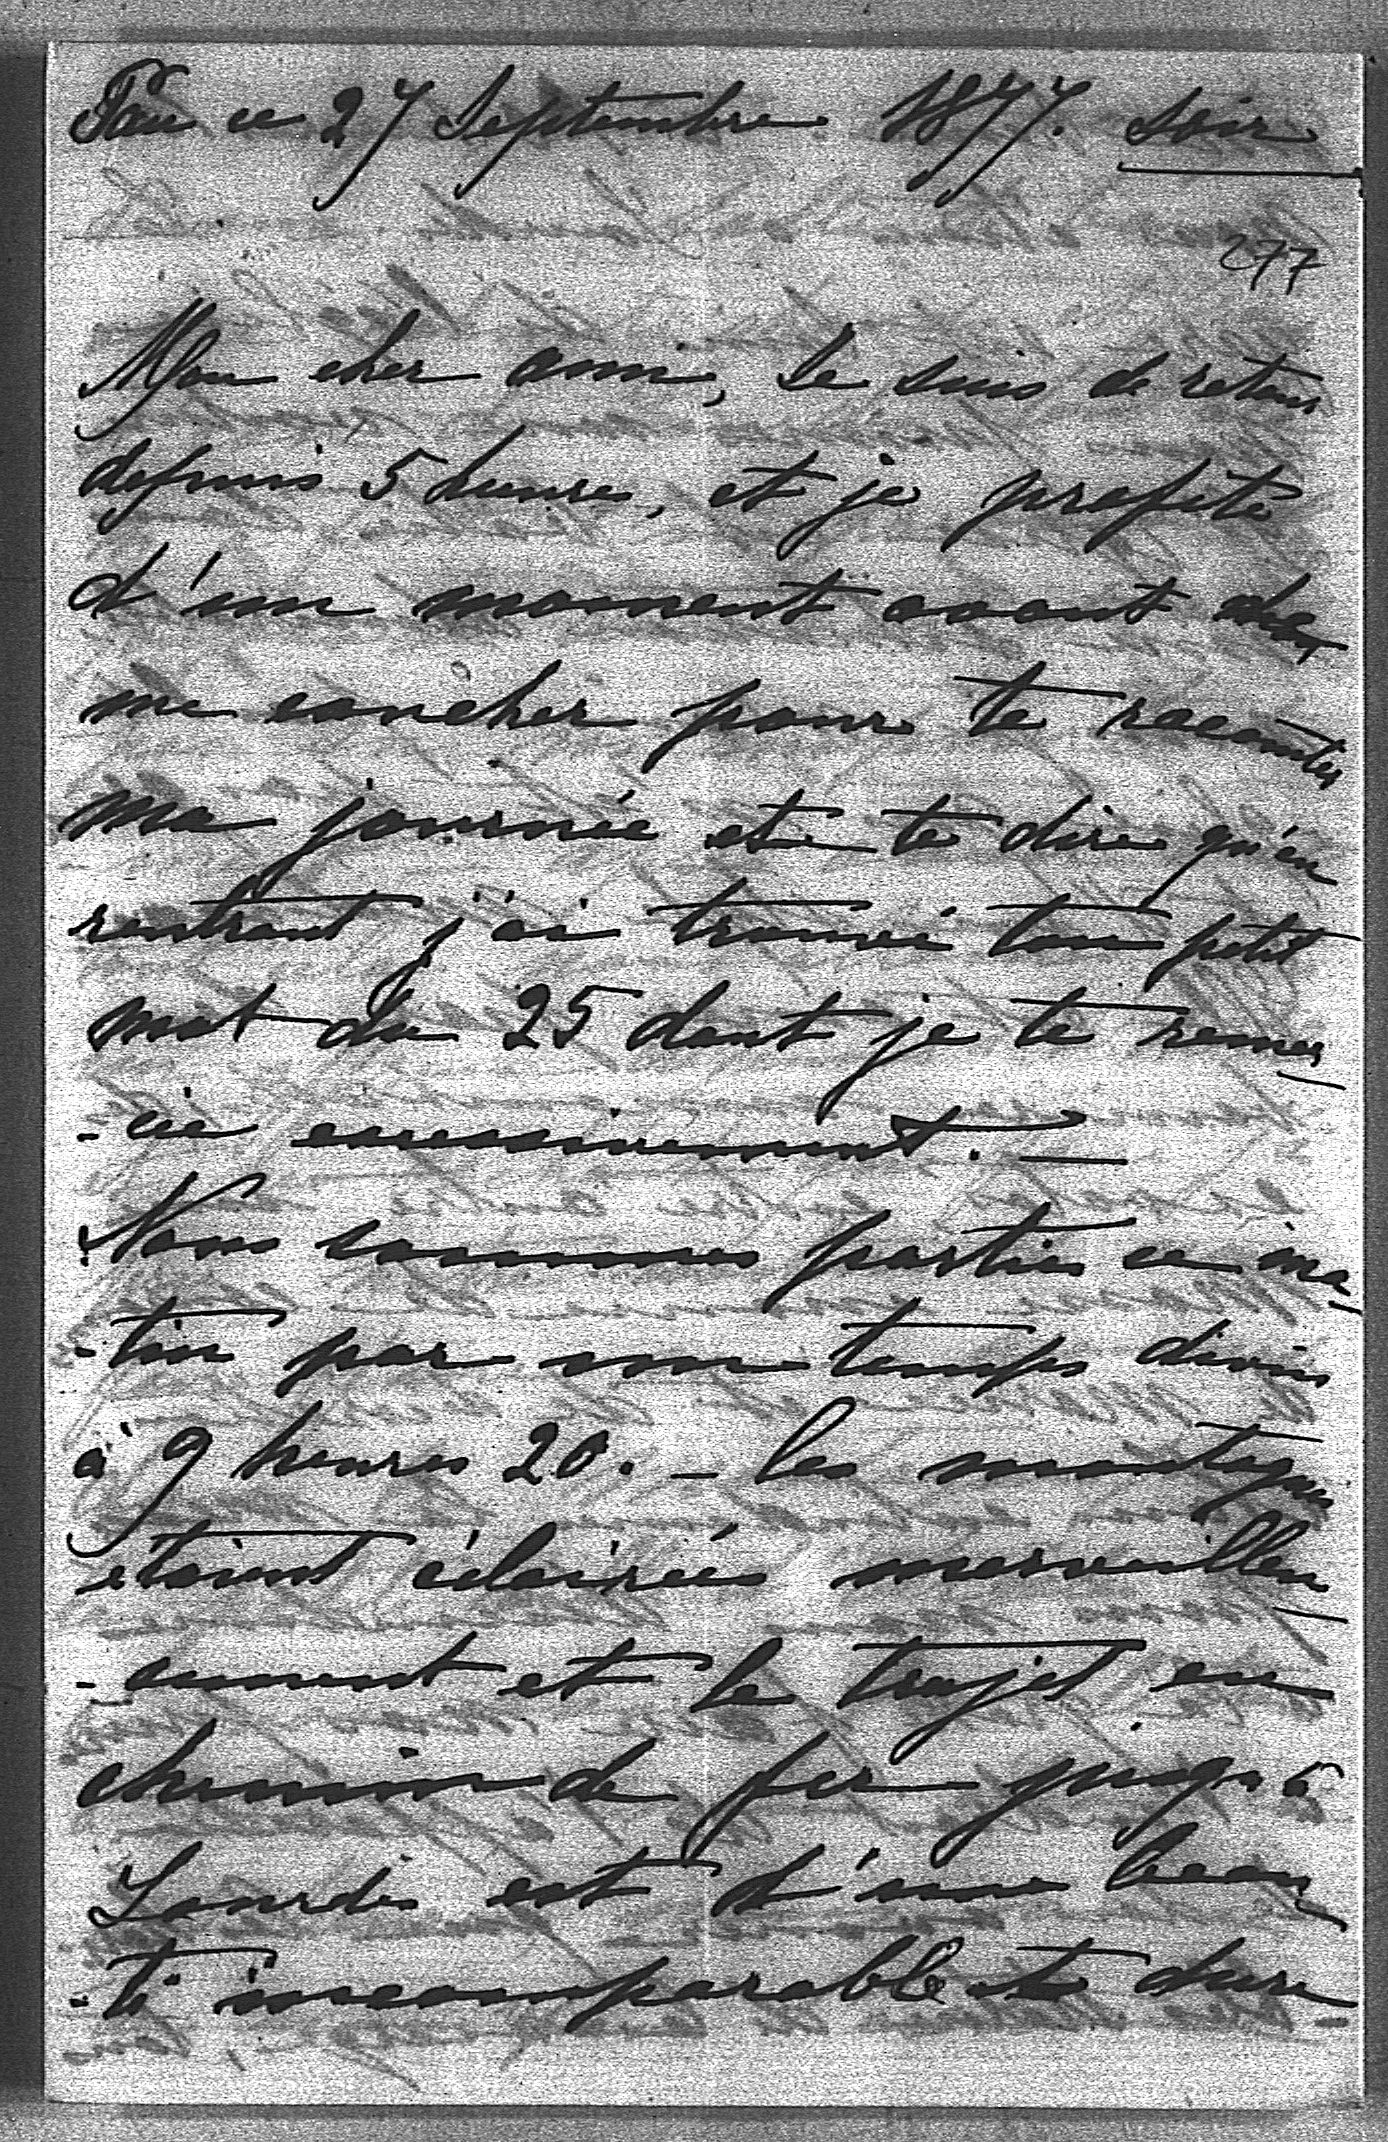 Pau ce 27 Septembre 1877. soir
277
Mon cher ami, Je suis de retour
depuis 5 heures, et je profite
d'un moment avant de
me coucher pour te raconter
ma journée et te dire qu'en
rentrant j'ai trouvé ton petit
mot du 25 dont je te remer
-cie excessivement. —
Nous sommes parties ce ma
-tin par un temps divin
à 9 heures 20. – les montagnes
étaient éclairées merveilleu
-sement et le trajet en
chemin de fer jusqu'à
Lourdes est d'une beau
-té incomparable et dure